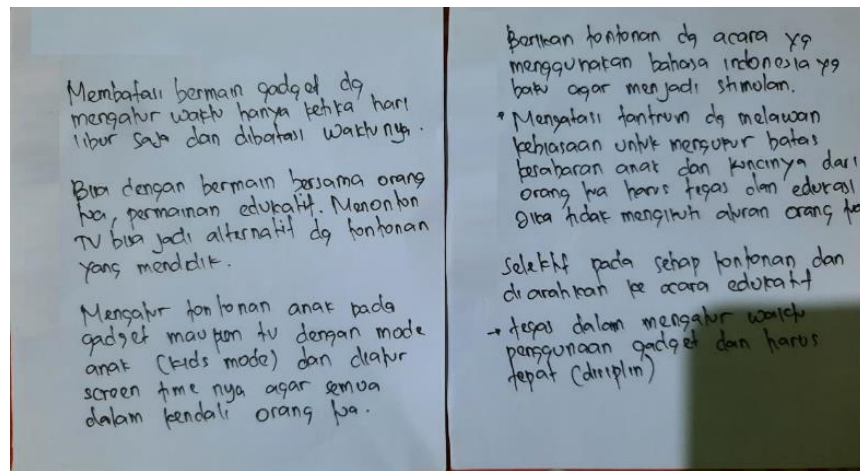 Membatasi bermain gadget dg
mengatur waktu hanya ketika hari
libur saja dan dibatasi waktunya.
Bisa dengan bermain bersama orang
tua, permainan edukatif. Menonton
TV bisa jadi alternatif dg tontonan
yang mendidik.
Mengatur tontonan anak pada
gadget maupun tv dengan mode
anak (kids mode) dan diatur
screen time nya agar semua
dalam kendali orang tua.
Berikan tontonan dg acara yg
menggunakan bahasa indonesia yg
baku agar menjadi stimulan.
• Mengatasi tantrum dg melawan
kebiasaan untuk mengukur batas
kesabaran anak dan kuncinya dari
orang tua harus tegas dan edukasi
jika tidak mengikuti aturan orang
Selektif pada setiap tontonan dan
di arahkan ke acara edukatif
→ tegas dalam mengatur waktu
penggunaan gadget dan harus
tepat (disiplin)